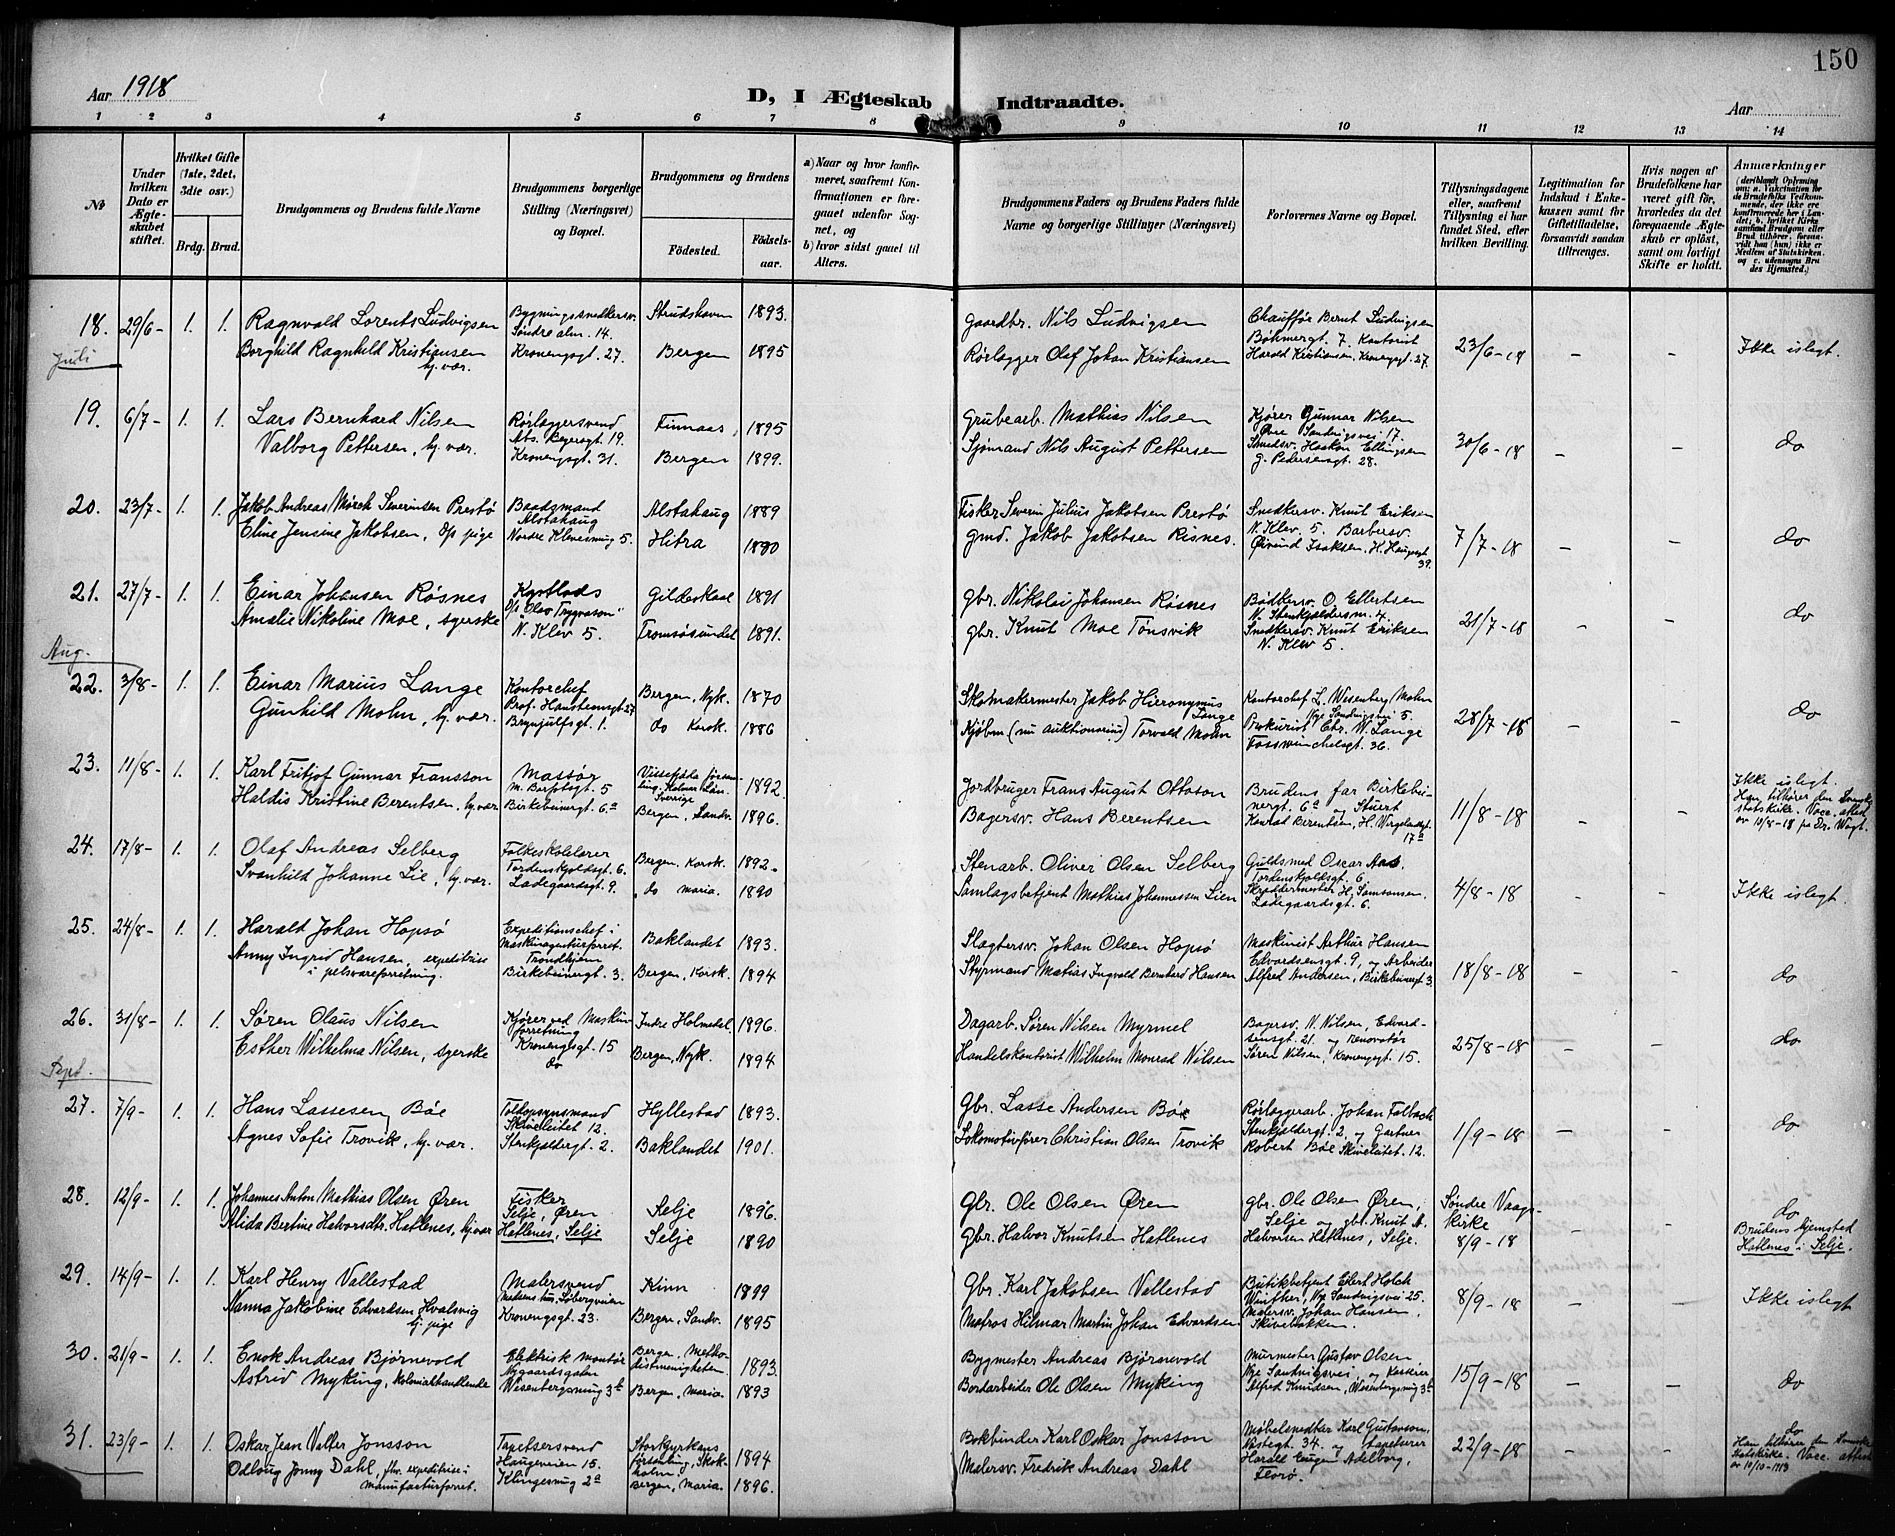 150
Aar 1918
D, I Ægteskab Indtraadte.
Aar
1 2 3 4 5 6 7 8 9 10 11 12 13 14
No
Under hvilken Dato er Ægteskabet stiftet.
Hvilket Gifte (1ste, 2det, 3die osv.)
Brdg. Brud.
Brudgommens og Brudens fulde Navne
Brudgommens borgerlige Stilling (Næringsvei) og Bopæl.
Brudgommens og Brudens
Fødested. Fødselsaar.
a) Naar og hvor konfirmeret, saafremt Konfirmationen er foregaaet udenfor Sognet, og
b) hvor sidst gaaet til Alters.
Brudgommens Faders og Brudens Faders fulde Navne og borgerlige Stillinger (Næringsvei)
Forlovernes Navne og Bopæl.
Tillysningsdagene eller, saafremt Tillysning ei har fundet Sted, efter hvilken Bevilling.
Legitimation for Indskud i Enkekassen samt for Giftetilladelse, forsaavidt saadan tiltrænges.
Hvis nogen af Brudefolkene har været gift før, hvorledes da det foregaaende Ægteskab er opløst, samt om lovligt Skifte er holdt.
Anmærkninger
(deriblandt Oplysning om: a. Vakcination for de Brudefolks Vedkommende, der ikke ere konfirmerede her i Landet; b. hvilket Kirkesamfund Brudgom eller Brud tilhører, forsaavidt han (hun) ikke er Medlem af Statskirken, og c. udensogns Brudes Hjemsted.)
18. 29/6- 1. 1. Ragnvald Lorents Ludvigsen Bygningssnedkersv. Søndre alm. 14. Strudshavn 1893. Gaardbr. Nils Ludvigsen Chauffør Bernt Ludvigsen Bøhmergt. 7. Kontorist 23/6-18 - - Ikke islegt.
Juli Borghild Ragnhild Kristiansen hj. vær. Kronengsgt. 27. Bergen 1895 Rørlægger Olaf Johan Kristiansen Harald Kristiansen, Kronengsgt. 27.
19. 6/7- 1. 1. Lars Bernhard Nilsen Rørlæggersvend Abs. Beyersgt. 19. Finnaas, 1895 Grubearb. Mathias Nilsen Kjører Gunnar Nilsen Øvre Sandvigsvei 17. 30/6-18 - - do
Valborg Pettersen, hj. vær. Kronengsgt. 31. Bergen 1899. Sjømand Nils August Pettersen Smedsv. Haakon Ellingsen G. Pedersensgt. 28.
20. 23/7- 1. 1. Jakob Andreas Mørch Severinsen Prestø Baadsmand Alstahaug Alstahaug 1889 Fisker Severin Julius Jakobsen Prestø Snedkersv. Knut Eriksen N. Klev. 5. Barbersv. 7/7-18 - - do
Eline Jensine Jakobsen, o/s pige Nordre Klevesmug 5. Hitra 1880 Gmd. Jakob Jakobsen Risnes. Øivind Isaksen, H. Haugesgt 39.
21. 27/7- 1. 1. Einar Johansen Røsnes Kystlods o/s "Olav Trygvason" Gildeskaal 1891 Gbr. Nikolai Johansen Røsnes Bødkersv. O. Ellertsen N. Stenkjeldersm. 4. 21/7-18 - - do
Amalie Nikoline Moe, syerske N. Klev 5. Tromsøsundet 1891. Gbr. Knut Moe Tonsvik Snedkersv. Knut Eriksen N. Klev 5.
Aug.
22. 3/8- 1. 1. Einar Marius Lange Kontorchef Prof. Hansteensgt. 27 Bergen, Nyk. 1870 Skomakermester Jakob Hieronymus Lange Kontorchef L. Wesenberg Mohn Nye Sandvigsvei 5. 28/7-18 - - do
Gunhild Mohn, hj. vær. Brynjulfsgt. 1. do Korsk. 1886 Kjøbm. (nu auktionarius) Torvald Mohn Prokurist Chr. W. Lange Fosswinckelsgt. 36.
23. 11/8- 1. 1. Karl Fritjof Gunnar Fransson Massør M. Børstsgt. 5 Vissefjäda församling, Kalmar Län. Sverrige 1892. Jordbruger Frans August Ottoson Brudens far Birkebeinergt. 6a og Stuert 11/8-18 - - Ikke islegt. Han tilhører den Svenske statskirke. Vacc. attest av 10/8-18 fra Dr. Vogt.
Haldis Kristine Berentsen, hj. vær Birkebeinergt. 6a Bergen, Sandv. 1896. Bagersv. Hans Berentsen Konrad Berentsen, H. Wergelandsgt. 17a
24. 17/8- 1. 1. Olaf Andreas Selberg Folkeskolelærer Tordenskjoldsgt. 6. Bergen, Korsk. 1892. Stenarb. Oliver Olsen Selberg Guldsmed Oscar Aas. Tordenskjoldsgt. 6. 4/8-18 - - Ikke islegt.
Svanhild Johanne Lie, hj. vær. Ladegaardsgt. 9. do maria. 1890 Samlagsbetjent Mathias Johannessen Lien Skreddermester H. Samsonsen Ladegaardsgt. 6.
25. 24/8- 1. 1. Harald Johan Hopsø Expeditionschef i Maskinagenturforret. Trondhjem Baklandet 1893. Slagtersv. Johan Olsen Hopsø Maskinist Arthur Hansen Edvardsensgt. 9, og Arbeider 18/8-18 - - do
Anny Ingrid Hansen, expeditrise i pelsvareforretning. Birkebeinergt. 3. Bergen, Korsk. 1894 Styrmand Mathias Ingvald Bernhard Hansen Alfred Andersen, Birkebeinergt. 3
26. 31/8- 1. 1. Søren Olaus Nilsen Kjører ved Maskinforretning Kroneng̱sgt. 15 Indre Holmedal. 1896. Dagarb. Søren Nilsen Myrmel Bagersv. N. Nilsen, Edvardsensgt. 21. og Renovatør 25/8-18 - - do
Esther Wilhelma Nilsen, syerske do Bergen, Nyk. 1894 Handelskontorist Wilhelm Monrad Nilsen Søren Nilsen, Kroneng̱sgt. 15.
Sept.
27. 7/9- 1. 1. Hans Lassesen Bøe Toldopsynsmand Skivebakken 12. Hyllestad 1893. Gbr. Lasse Andersen Bøe Rørlæggerarb. Johan Falbach Stenkjeldergt. 2. og Gartner 1/9-18 - - do
Agnes Sofie Trovik, hj. vær. Stenkjeldergt. 2. Baklandet 1901. Lokomotivfører Christian Olsen Trovik Robert Bøe Skivebakken 12.
28. 12/9- 1. 1. Johannes Anton Mathias Olsen Øren Fisker Selje, Øren Selje 1896. Gbr. Ole Olsen Øren Gbr. Ole Olsen Øren, Selje og gbr. Knut A. Søndre Vaags kirke 8/9-18 - - do
Alida Bertine Halvorsdtr. Hatlenes, hj. vær Hatlenes, Selje Selje 1890 Gbr. Halvor Knutsen Hatlenes Halvorsen Hatlenes, Selje. Brudens hjemsted Hatlenes i Selje.
29. 14/9- 1. 1. Karl Henry Vallestad Malersvend Madsens hus, Søbergveien Kinn 1899 Gbr. Karl Jakobsen Vallestad Butikbetjent Eilert Holck Winther, Nye Sandvigsvei 25. 8/9-18 - - Ikke islegt
Nanna Jakobine Edvardsen Hvalsvig hj. pige Kroneng̱sgt. 23. Bergen, Sandv. 1895 Matros Hilmar Martin Johan Edvardsen Malersv. Johan Hansen, Skivebakken.
30. 21/9- 1. 1. Enok Andreas Bjørnevold Elektrisk Montør Nygaardsgaten Bergen, Methodistmenigheten 1893. Bygmester Andreas Bjørnevold Murmester Gustav Olsen Nye Sandvigsvei, og Kasserer 15/9-18 - - do
Astrid Myking, Kolonialhandlende Wesenbergsmug 3b Bergen, Maria. 1893 Bordarbeider Ole Olsen Myking Alfred Knudsen, Wesenbergsmug 3b
31. 23/9- 1. 1. Oskar Jean Valter Jonsson Tapetsersvend Haugeveien 15. Storkyrkans församling, Stokholm 1894 Bokbinder Karl Oskar Jonsson Møbelsnedker Karl Gustavson, Vestegt. 34. og Stapetserer 22/9-18 - - do
Odlaug Jonny Dahl, fhv. expeditrise i manufakturforret. Klingesmug 2a Bergen, Maria. 1896. Malersv. Fredrik Andreas Dahl Harald Eugen Adelborg, Florø. Han tilhører den Svenske statskirke. Vacc. attest av 10/10-1913